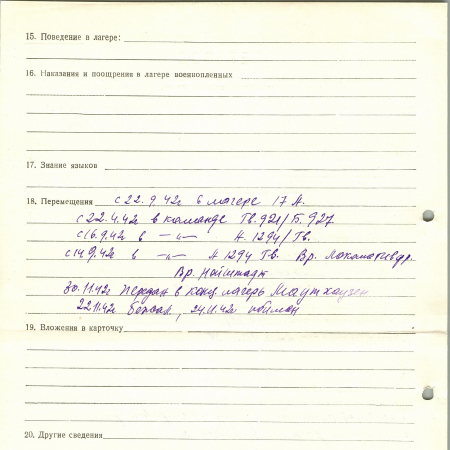 15. Поведение в лагере:
16. Наказания и поощрения в лагере военнопленных
17. Знание языков
18. Перемещения с 22.9.42г в лагере 17 А.
с 22.4.42г в команде Гв. 921/Б. 927
с 16.9.42г в —"— А. 1294/Гв.
с 14.9.42г в —"— А 1294 Гв. Вр.
Вр. Нойштадт
30.11.42г передан в конц лагерь Маутхаузен
22.11.42г бежал, 24.11.42г пойман
19. Вложения в карточку
20. Другие сведения